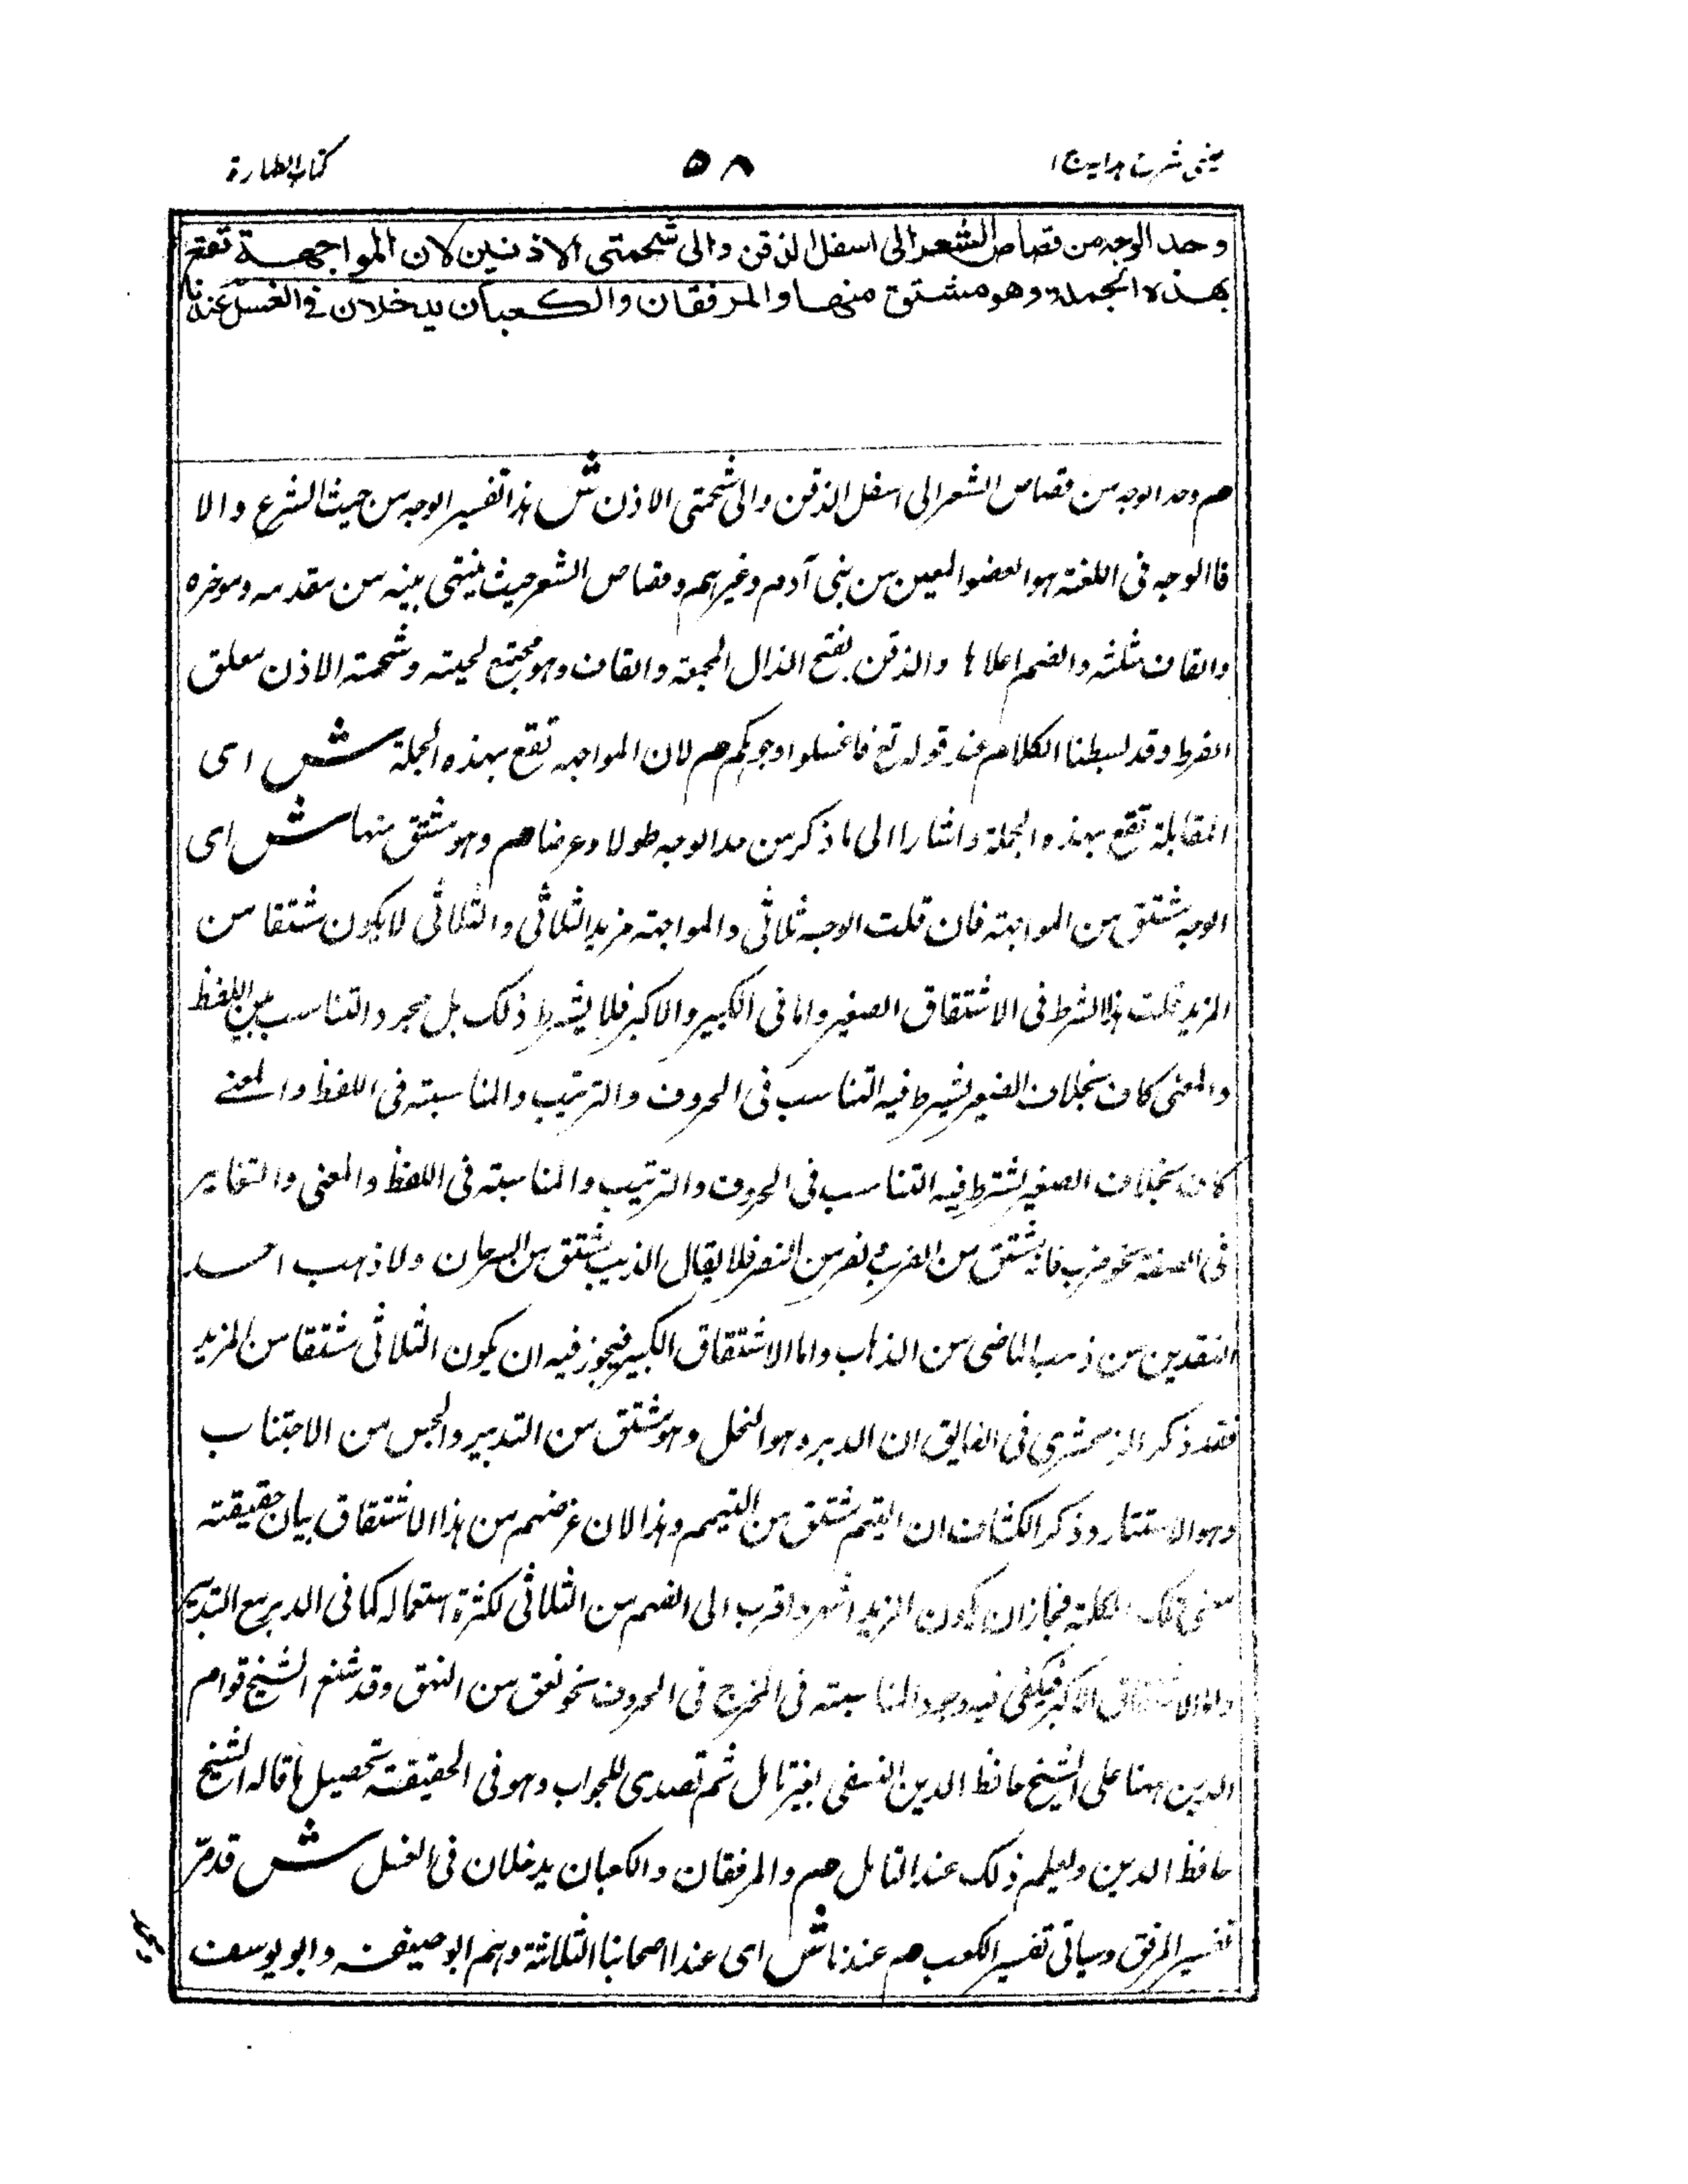 عینی شرح ہدایہ ج ۱
۵۸
کتاب الطہارة
وحد الوجه من قصاص الشعر الى اسفل الذقن والى شحمتى الاذنين لان المواجهة تقع
بهذه الجملة وهو مشتق منها والمرفقان والكعبان يدخلان فى الغسل عندنا
هم وحد الوجه من قصاص الشعر الى اسفل الذقن والى شحمتى الاذن ش هذا تفسير الوجه من حيث الشرع والا
فا الوجه فى اللغة هو العضو المعين من بنى آدم وغيرهم وقصاص الشعر حيث ينتهى بينه من مقدمه وموخره
والقاف مثلثة والضم اعلاها والذقن بفتح الذال المعجمة والقاف وهو مجتمع لحيته وشحمة الاذن معلق
القرط وقد بسطنا الكلام عند قوله تع فاغسلوا وجوهكم هم لان المواجهه تقع بهذه الجملة ش اى
المقابلة تقع بهذه الجملة واشارا الى ما ذكر من حد الوجه طولا وعرضا هم وهو مشتق منها ش اى
الوجه مشتق من المواجهة فان قلت الوجه ثلاثى والمواجهة مزيد الثلاثى والثلاثى لا يكون مشتقا من
المزيد قلت هذا الشرط فى الاشتقاق الصغير واما فى الكبير والاكبر فلا يشترط ذلك بل مجرد التناسب بين اللفظ
والمعنى كاف بخلاف الصغير يشترط فيه التناسب فى الحروف والترتيب والمناسبة فى اللفظ والمعنے
كاف بخلاف الصغير يشترط فيه التناسب فى الحروف والترتيب والمناسبة فى اللفظ والمعنى والتغاير
فى الصفة نحو ضرب فانه مشتق من الضرب ونصر من النصر فلا يقال الذيب مشتق من السرحان ولا ذهب احد
النقدين من ذهب الماضى من الذهاب واما الاشتقاق الكبير فيجوز فيه ان يكون الثلاثى مشتقا من المزيد
فقد ذكر الزمخشرى فى الفايق ان الدبر وهو النحل وهو مشتق من التدبير والجن من الاجتناب
وهو الاستتار وذكر الكشاف ان اليتم مشتق من التيمم وهذا لان غرضهم من هذا الاشتقاق بيان حقيقته
معنى تلك الكلمة فجاز ان يكون المزيد اشهر واقرب الى الفهم من الثلاثى لكثرة استعماله كما فى الدبر مع التدبير
واما الاشتقاق الاكبر فيكفى فيه وجود المناسبة فى المخرج فى الحروف نحو نعق من النهق وقد شنع الشيخ قوام
الدين ههنا على الشيخ حافظ الدين النسفى بغير تامل ثم تصدى للجواب وهو فى الحقيقة تحصيل ما قاله الشيخ
حافظ الدين ويعلم ذلك عند التامل هم والمرفقان والكعبان يدخلان فى الغسل ش قد مرّ
تفسير المرفق وسياتى تفسير الكعب هم عندنا ش اى عند اصحابنا الثلاثة وهم ابو حنيفه وابو يوسف